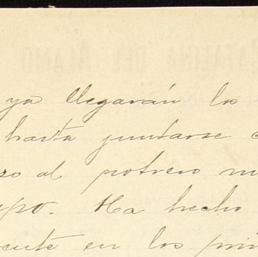 ATALINA DEL ALAMO
ya llegarán los
hasta juntarse c
so al potrero nu
mpo. Ha hecho
ente en los pri